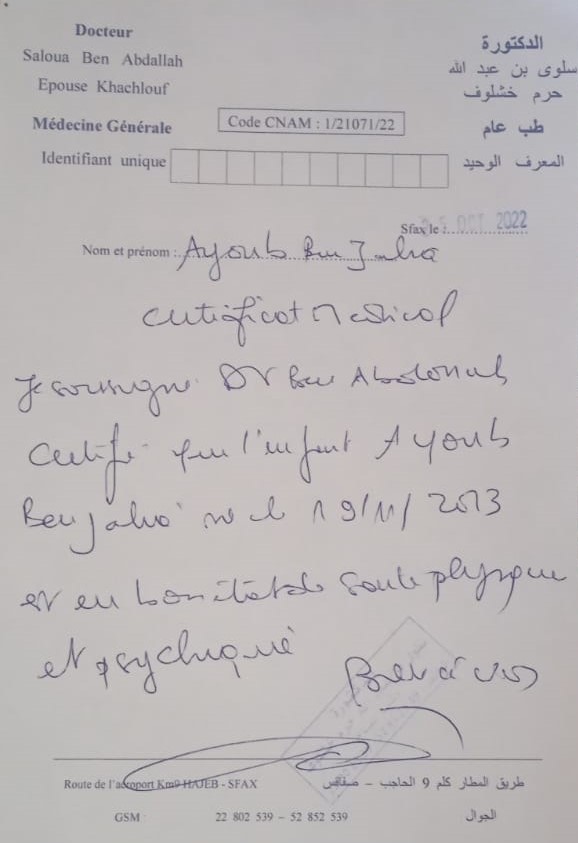 Docteur
Saloua Ben Abdallah
Epouse Khachlouf
الدكتورة
سلوى بن عبد الله
حرم خشلوف
Médecine Générale
Code CNAM : 1/21071/22
طب عام
Identifiant unique
المعرف الوحيد
Sfax le : OCT 2022
Nom et prénom : Ayoub Ben
Certificat Medical
Je soussigne Dr Ben Abdallah
Certifie que l'enfant Ayoub
Ben né le 19/11/2013
est en bon état de santé physique
et psychique
Route de l'aéroport Km9 HAJEB - SFAX
طريق المطار كلم 9 الحاجب - صفاقس
GSM : 22 802 539 - 52 852 539
الجوال